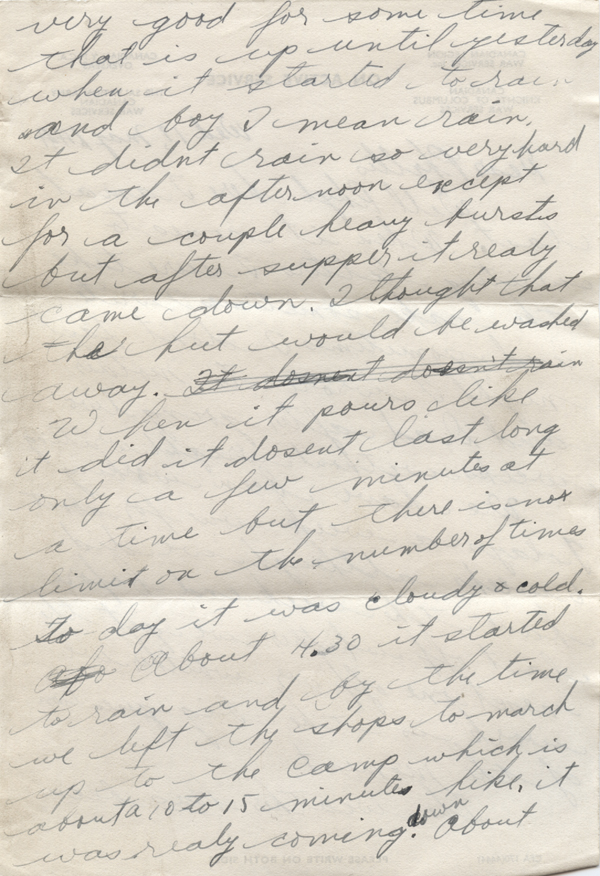 very good for some time
that is up until yesterday
when it started to rain
and boy I mean rain.
It didnt rain so very hard
in the afternoon except
for a couple heavy bursts
but after supper it realy
came down. I thought that
the hut would be washed
away. It dosent doesn't rain
When it pours like
it did it dosent last long
only a few minutes at
a time but there is not
limit on the number of times
To day it was cloudy & cold.
About 4.30 it started
to rain and by the time
we left the shops to march
up to the camp which is
about a 10 to 15 minutes hike, it
was realy coming down. About